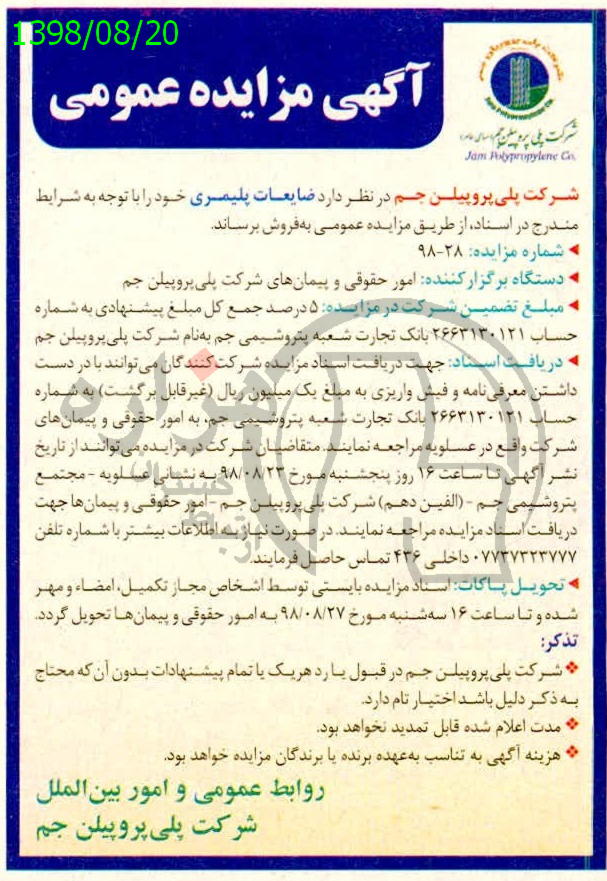 1398/08/20
آگهی مزایده عمومی
Jam Polypropylene Co.
شرکت پلی پروپیلن جم
Jam Polypropylene Co.
شرکت پلی‌پروپیلن جم در نظر دارد ضایعات پلیمری خود را با توجه به شرایط
مندرج در اسناد، از طریق مزایده عمومی به‌فروش برساند.
شماره مزایده: ۲۸-۹۸
دستگاه برگزارکننده: امور حقوقی و پیمان‌های شرکت پلی‌پروپیلن جم
مبلغ تضمین شرکت در مزایده: ۵ درصد جمع کل مبلغ پیشنهادی به شماره
حساب ۲۶۶۳۱۳۰۱۲۱ بانک تجارت شعبه پتروشیمی جم به‌نام شرکت پلی‌پروپیلن جم
دریافت اسناد: جهت دریافت اسناد مزایده شرکت‌کنندگان می‌توانند با در دست
داشتن معرفی‌نامه و فیش واریزی به مبلغ یک میلیون ریال (غیرقابل برگشت) به شماره
حساب ۲۶۶۳۱۳۰۱۲۱ بانک تجارت شعبه پتروشیمی جم، به امور حقوقی و پیمان‌های
شرکت واقع در عسلویه مراجعه نمایند. متقاضیان شرکت در مزایده می‌توانند از تاریخ
نشر آگهی تا ساعت ۱۶ روز پنجشنبه مورخ ۹۸/۰۸/۲۳ به نشانی عسلویه - مجتمع
پتروشیمی جم - (الفین دهم) شرکت پلی‌پروپیلن جم - امور حقوقی و پیمان‌ها جهت
دریافت اسناد مزایده مراجعه نمایند. در صورت نیاز به اطلاعات بیشتر با شماره تلفن
۰۷۷۳۷۳۲۳۷۷۷ داخلی ۴۳۶ تماس حاصل فرمایند.
تحویل پاکات: اسناد مزایده بایستی توسط اشخاص مجاز تکمیل، امضاء و مهر
شده و تا ساعت ۱۶ سه‌شنبه مورخ ۹۸/۰۸/۲۷ به امور حقوقی و پیمان‌ها تحویل گردد.
تذکر:
شرکت پلی‌پروپیلن جم در قبول یا رد هریک یا تمام پیشنهادات بدون آن‌که محتاج
به ذکر دلیل باشد اختیار تام دارد.
مدت اعلام شده قابل تمدید نخواهد بود.
هزینه آگهی به تناسب به‌عهده برنده یا برندگان مزایده خواهد بود.
روابط عمومی و امور بین‌الملل
شرکت پلی‌پروپیلن جم